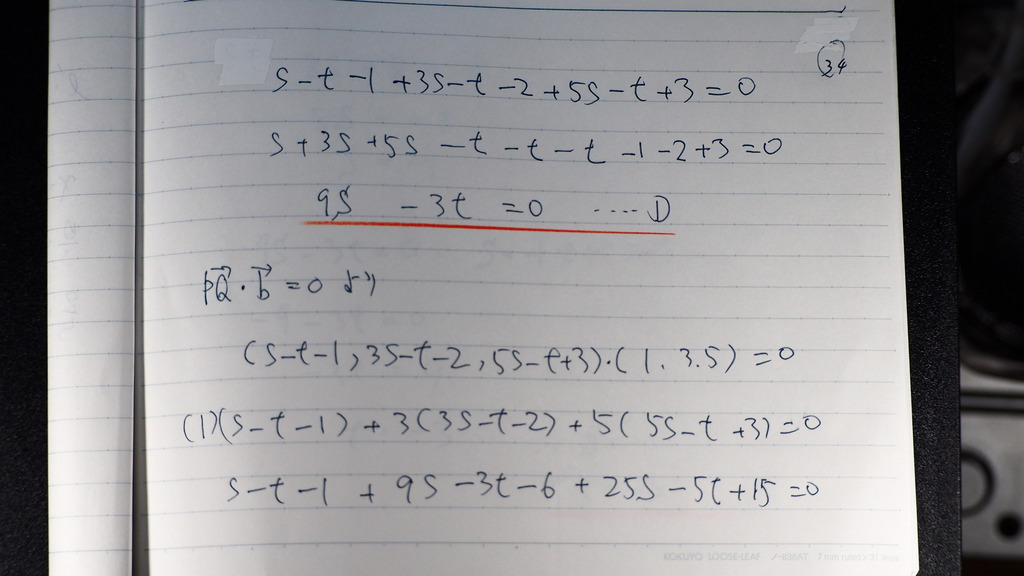 34
s-t-1+3s-t-2+5s-t+3=0
s+3s+5s-t-t-t-1-2+3=0
9s -3t =0 ....①
PQ→・b→=0 より
(s-t-1,3s-t-2,5s-t+3)・(1.3.5)=0
(1)(s-t-1)+3(3s-t-2)+5(5s-t+3)=0
s-t-1+9s-3t-6+25s-5t+15=0
KOKUYO LOOSE-LEAF ノ-836AT 7 mm ruled × 31 lines